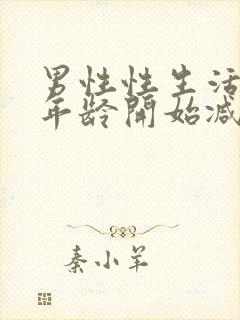 男性性生活
年龄開始减
秦小羊